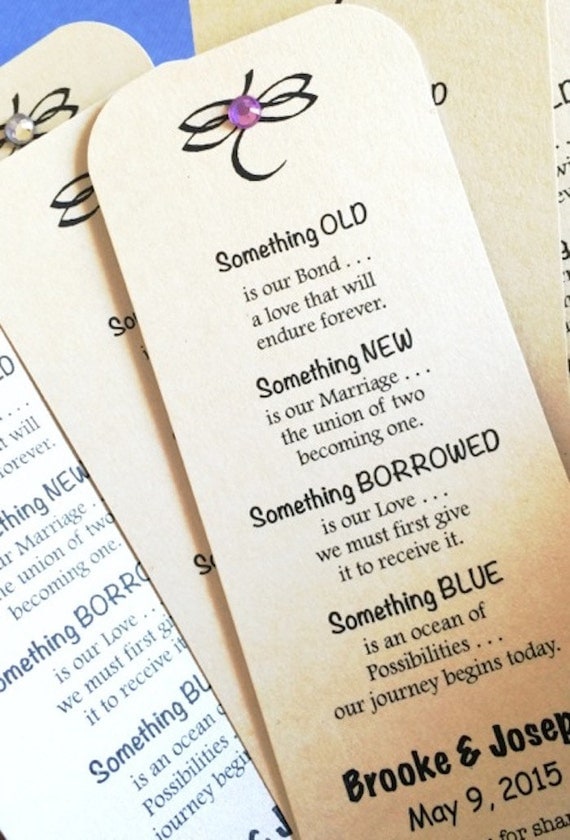 Something OLD
is our Bond . . .
a love that will
endure forever.
Something NEW
is our Marriage . . .
the union of two
becoming one.
Something BORROWED
is our Love . . .
we must first give
it to receive it.
Something BLUE
is an ocean of
Possibilities . . .
our journey begins today.
Brooke &
May 9, 2015
for
OLD
will
forever.
NEW
our Marriage . . .
the union of two
becoming one.
Something
is our Love . . .
we must first give
it to receive it.
Something
is an ocean
Possibilities
our journey